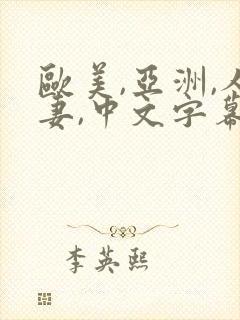 歐美,亞洲,人
妻,中文字幕
李英熙